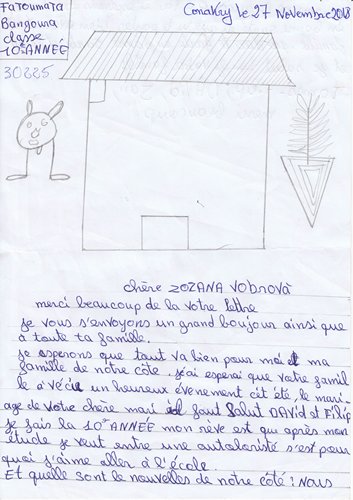 Fatoumata
Bangoura
classe
10e ANNÉE
30225
Conakry le 27 Novembre 2018
chère ZOZANA VOBNOVÀ
merci beaucoup de la votre lettre
je vous s'envoyons un grand boujour ainsi que
à toute ta famille.
je esperons que tout va bien pour moi et ma
famille de notre côte. j'ai esperai que votre famil
le a vécu un heureux évenement cit été le mari-
age de votre chère mari il faut Salut DAVID st Filip
je fais la 10e ANNÉE mon rêve est qui après mon
étude je veut entre une s'est pour
quoi j'aime aller à l'école.
Et quelle sont le nouvelles de notre côté : Nous